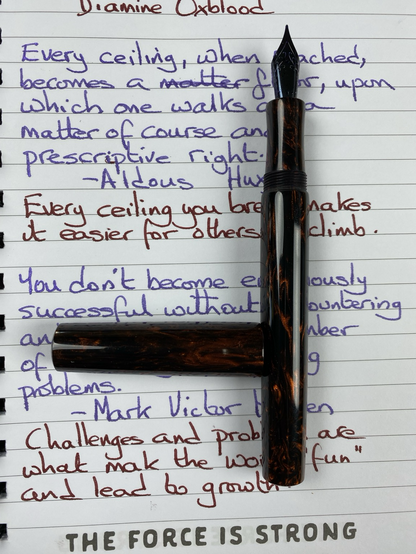 Diamine Oxblood
Every ceiling, when ached,
becomes a matter f r, upon
which one walks a a
matter of course and
prescriptive right.
-Aldous Hux
Every ceiling you bre makes
it easier for others climb.
You don't become e ously
successful without ountering
an nber
of g
problems.
- Mark Victor H en
Challenges and prob are
what mak the wo "fun"
and lead to growth
THE FORCE IS STRONG